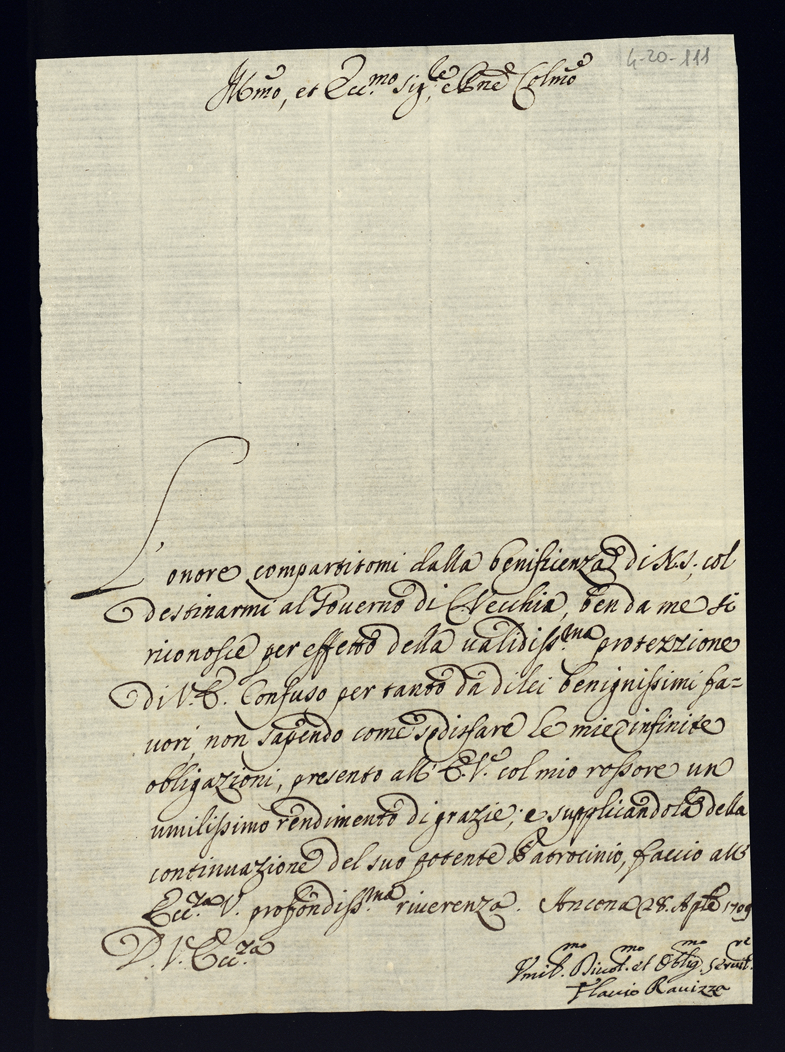 4-20-111
Illmo, et Ecc.mo Sig.re e Pne Colmo
L'onore compartitomi dalla benificenza di N.S. col
destinarmi al Governo di CVecchia, ben da me si
riconosce per effetto della validiss.ma protezzione
di V.E. Confuso per tanto da di lei benignissimi fa=
uori, non sapendo come sodisfare le mie infinite
obligazioni, presento all' E.V. col mio rossore un
umilissimo rendimento di grazie; e supplicandola della
continuazione del suo potente Patrocinio, faccio all'
Ecc.za V. profondiss.ma riuerenza. Ancona 28. Aple 1709
D. V. Ecc.za
Vmil.mo Diuot.mo et Oblig.mo Seruit.re
Flauio Rauizza